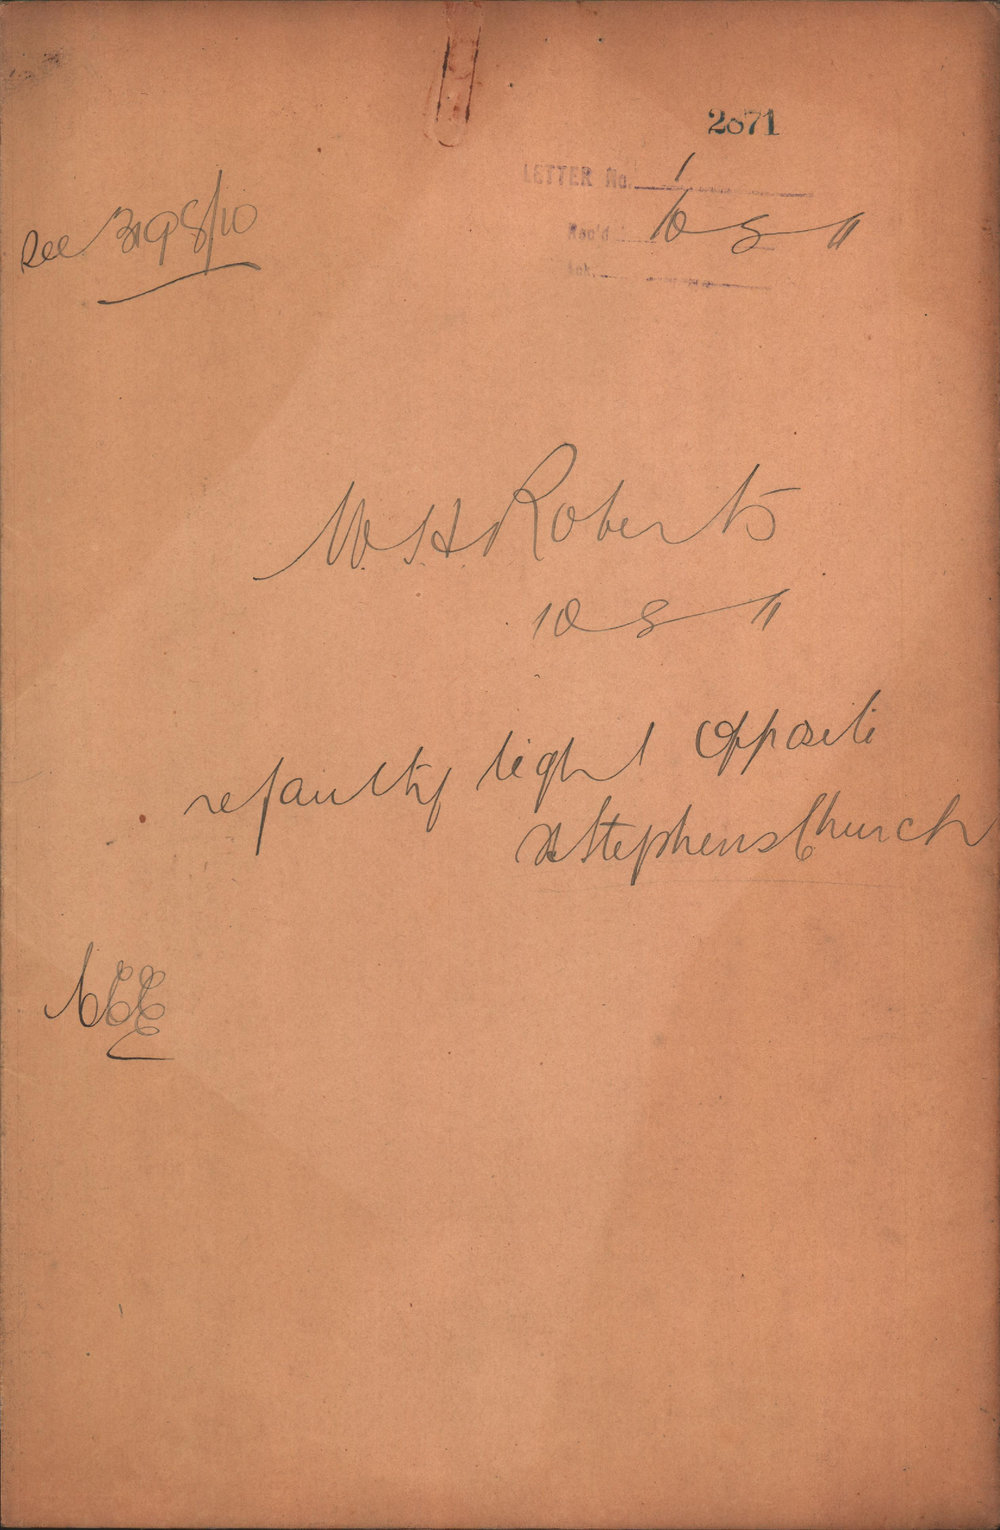 2871
LETTER No. 1
Rec'd 10 8 11
Ack.
see 3198/10
W. H. Roberts
10 8 11
re faulty light opposite
St Stephens Church
CEE